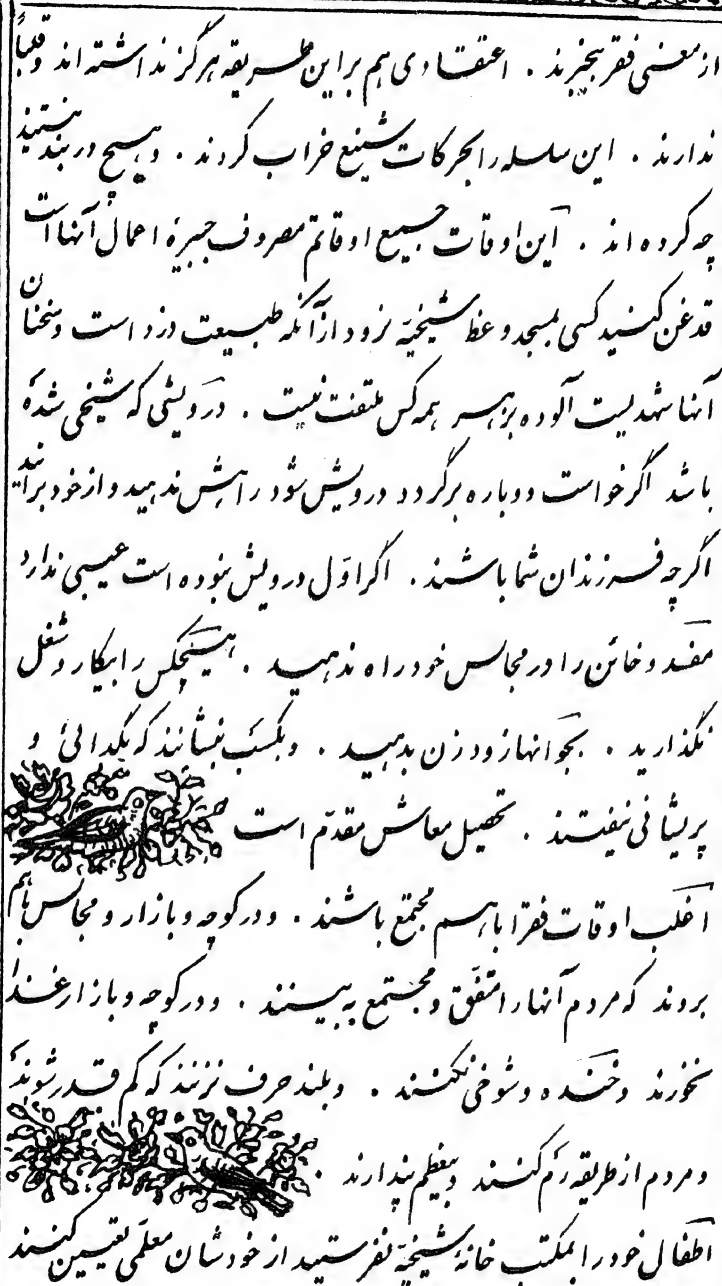 از معنی فقر بیخبرند . اعتقادی هم براین طریقه هرگز نداشته اند و قلباً
ندارند . این سلسله را بحرکات شنیع خراب کردند . و هیچ در بند نیستید
چه کرده اند . این اوقات جمیع اوقاتم مصروف جبیرهٔ اعمال آنها است
قدغن کنید کسی بمسجد و عظ شیخیّه نرود از آنکه طبیعت دزد است و سخنان
آنها شهدیست آلوده بزهر همه کس ملتفت نیست . درویشی که شیخی شده
باشد اگر خواست دوباره برگردد درویش شود راهش ندهید و از خود برانید
اگرچه فرزندان شما باشند . اگر اوّل درویش نبوده است عیبی ندارد
مفسد و خائن را در مجالس خود راه ندهید . هیچکس را بیکار و شغل
نگذارید . بجوانها زود زن بدهید . و بکسب بنشانند که بگدائی و
پریشانی نیفتند . تحصیل معاش مقدّم است
اغلب اوقات فقرا باهم مجتمع باشند . و در کوچه و بازار و مجالس باهم
بروند که مردم آنها را متّفق و مجتمع به بینند . و در کوچه و بازار غذا
نخورند و خنده و شوخی نکنند . و بلند حرف نزنند که کم قدر شوند
و مردم از طریقه رَم کنند و بیعظم پندارند .
اطفال خود را بمکتب خانهٔ شیخیّه نفرستید از خودشان معلّمی تعیین کنند